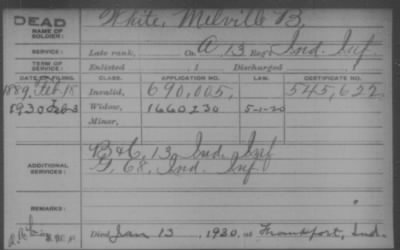 DEAD
NAME OF SOLDIER: White, Melville B.
SERVICE: Late rank, Co. A, 13 Reg't Ind. Inf.
TERM OF SERVICE: Enlisted , 1 Discharged , 1
DATE OF FILING. CLASS. APPLICATION NO. LAW. CERTIFICATE NO.
1889, Feb. 18 Invalid, 690,005, 545,622
1930 Feb-3 Widow, 1660230 5-1-20
Minor,
ADDITIONAL SERVICES: B & C, 13 Ind. Inf
G, 68, Ind. Inf
REMARKS:
Died Jan 13, 1930, at Frankfort, Ind.